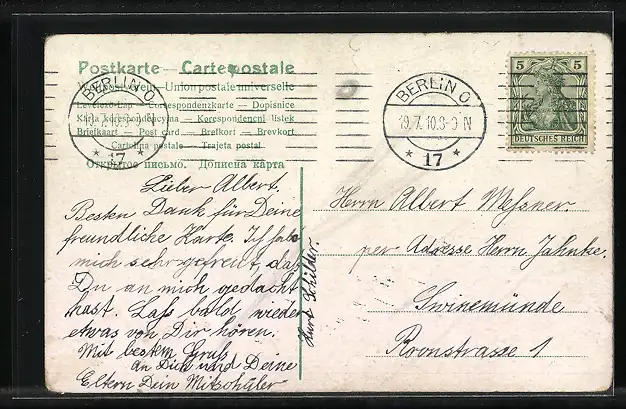 Postkarte — Carte postale
Weltpostverein — Union postale universelle
Levelező-Lap — Correspondenzkarte — Dopisnice
Karta korespondencyjna — Korespondenční lístek
Briefkaart — Post card — Brefkort — Brevkort
Cartolina postale — Tarjeta postal
Открытое письмо. Дописна карта
BERLIN O.
19.7.10.8-9 N
* 17 *
BERLIN O.
19.7.10.8-9 N
* 17 *
5 5
DEUTSCHES REICH
Lieber Albert.
Besten Dank für Deine
freundliche Karte. Ich habe
mich sehr gefreut, daß
Du an mich gedacht
hast. Laß bald wieder
etwas von Dir hören.
Mit bestem Gruß
an Dich und Deine
Eltern Dein Mitschüler
Kurt Schilder.
Herrn Albert Messner.
per Adresse Herrn Jahnke.
Swinemünde
Roonstrasse 1